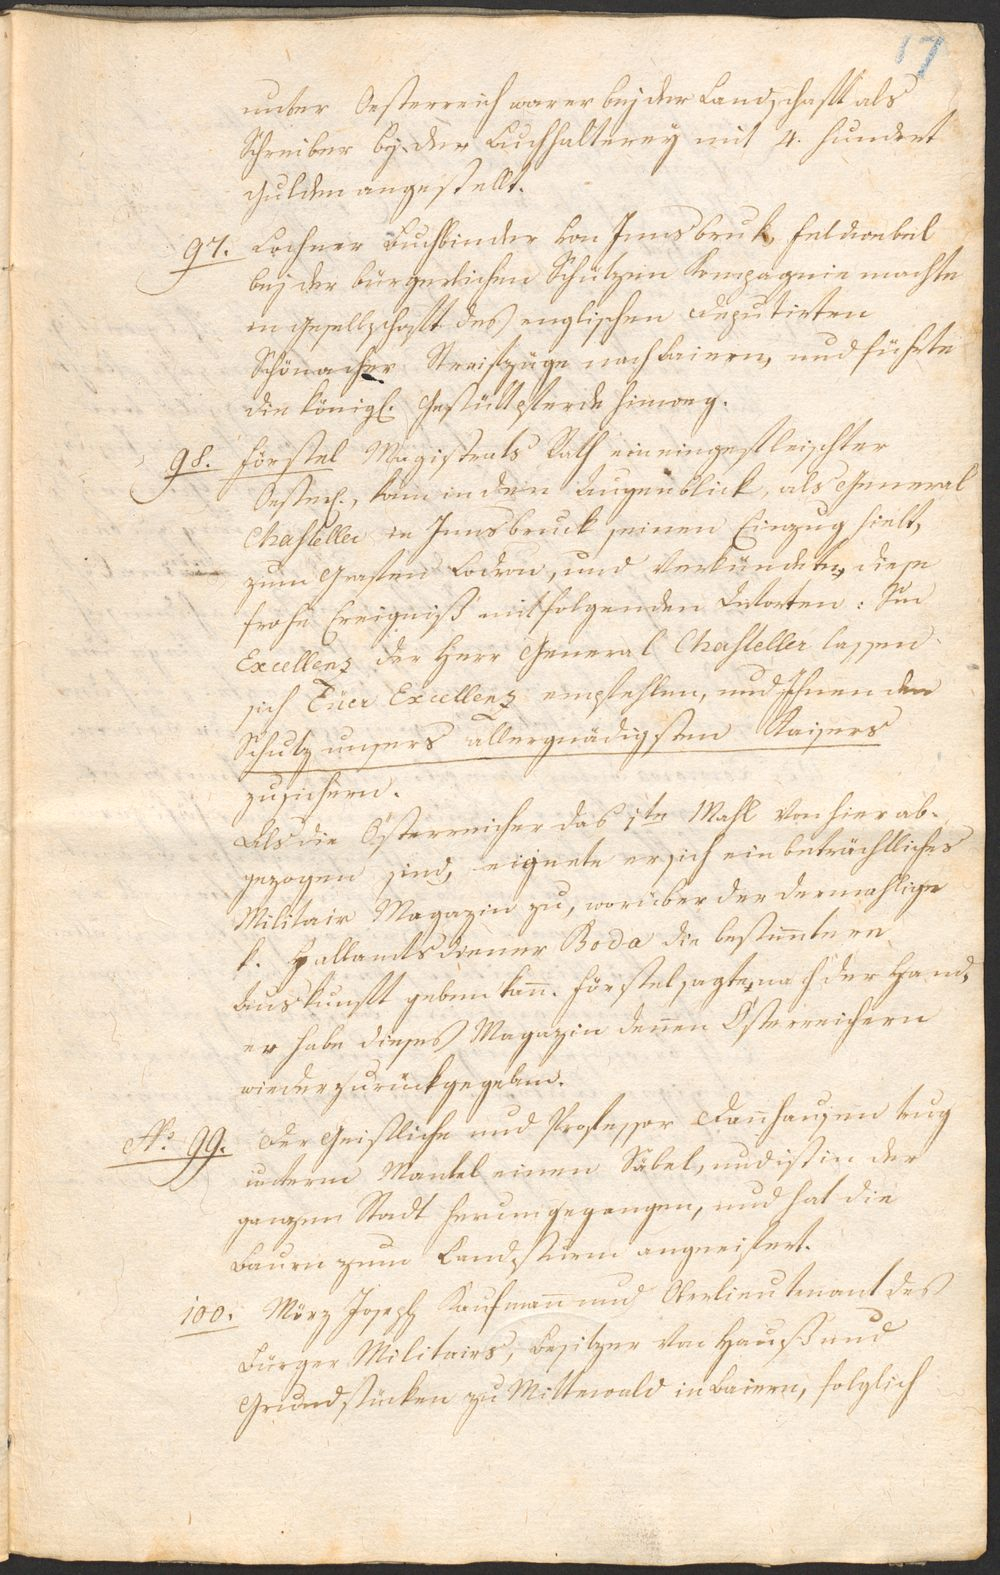 17
unter Oesterreich war er bey der Landschafft als
Schreiber bey der Buchhalterey mit 4. hundert
Gulden angestellt.
97. Lochner Buchbinder von Innsbruk, Feldwebel
bey der bürgerlichen Schützen Kompagnie machte
in Gesellschafft des englischen Deputirten
Schönacher Streifzüge nach Baiern, und führte
die königl. Gestüttpferde hinweg.
98. Förstel Magistrats Rath ein eingefleischter
Oesterr., kam in dem Augenblick, als General
Chasteller in Innsbruck seinen Einzug hielt,
zum Grafen Lodron, und verkündete, diese
frohe Ereigniß mit folgenden Worten: Sr
Excellenz der Herr General Chasteller lassen
sich Euer Excellenz empfehlen, und Ihnen den
Schutz unsers allergnädigsten Kaisers
zusichern.
Als die Österreicher das 1te Mahl von hier ab-
gezogen sind, eignete er sich ein beträchtliches
Militair Magazin zu, worüber der dermahlige
k. Hallamtsdiener Boda die bestimteren
Auskunfft geben kann. Förstel sagte, nach der Hand,
er habe dieses Magazin denen Österreichern
wieder zurückgegeben.
No. 99. Der Geistliche und Professor Danhauser trug
unterm Mantel einen Säbel, und ist in der
ganzen Stadt herum gegangen, und hat die
Baurn zum Landsturm angeeifert.
100. Mörz Joseph Kaufmann und Oberlieutenant des
Bürger Militairs, Besitzer von Hauß und
Grundstücken zu Mittewald in Baiern, folglich